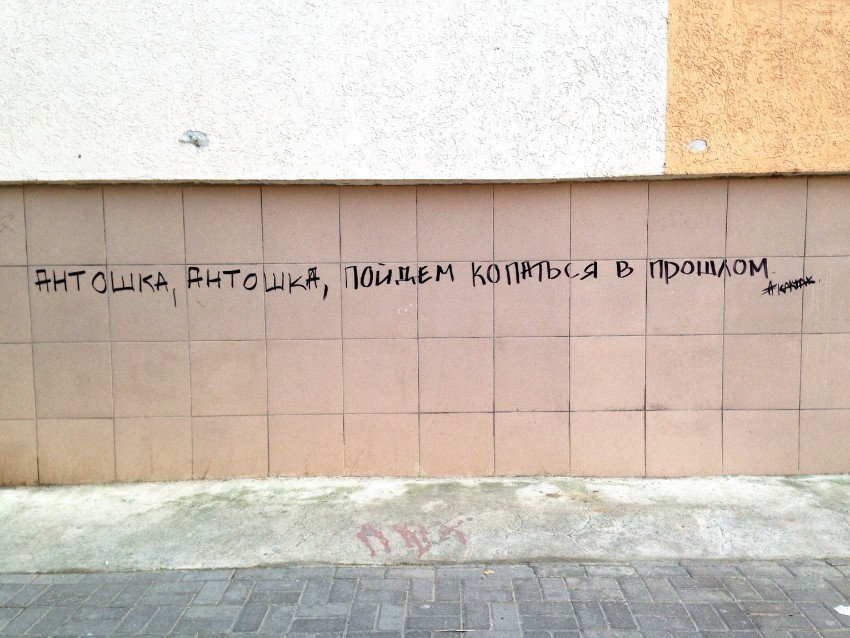 АНТОШКА, АНТОШКА, ПОЙДЕМ КОПАТЬСЯ В ПРОШЛОМ